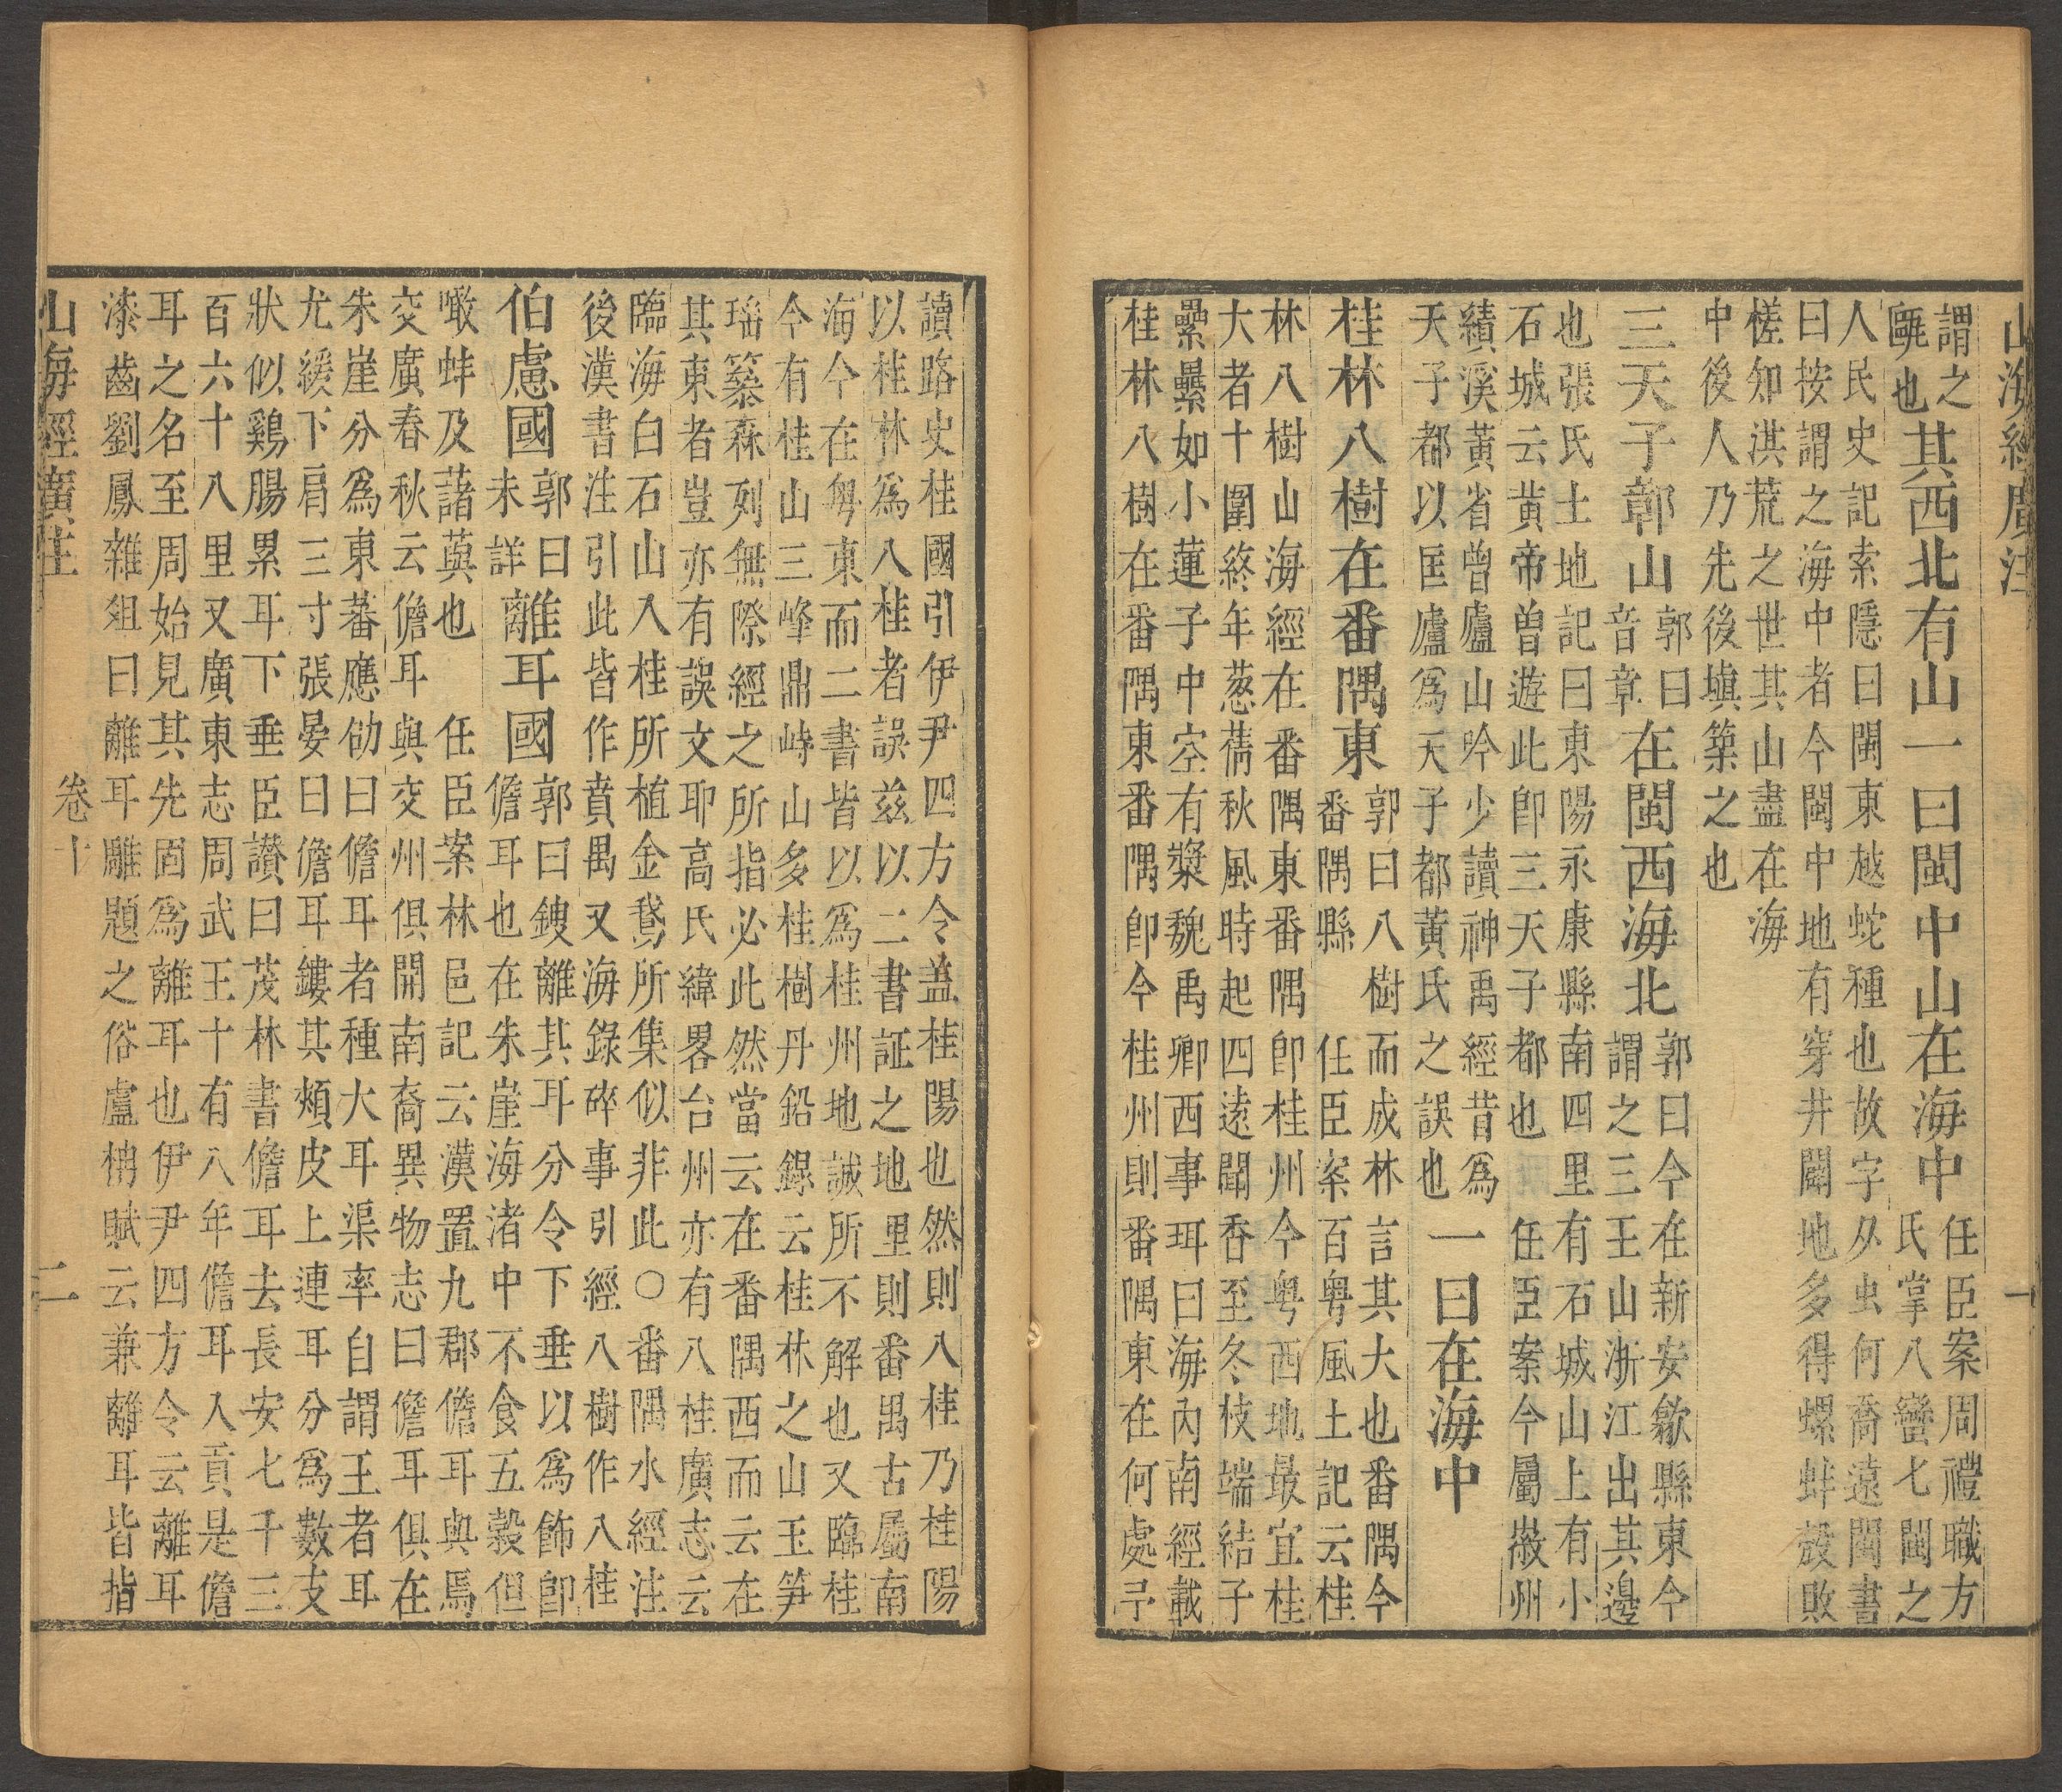 山海經廣注 一
謂之其西北有山一曰閩中山在海中任臣案周禮職方
甌也氏掌八蠻七閩之
人民史記索隱曰閩東越蛇種也故字从虫何喬遠閩書
曰按謂之海中者今閩中地有穿井闢地多得螺蚌殼敗
槎知淇荒之世其山盡在海
中後人乃先後塡築之也
三天子鄣山郭曰音章在閩西海北郭曰今在新安歙縣東今
謂之三王山浙江出其邊
也張氏土地記曰東陽永康縣南四里有石城山上有小
石城云黄帝曾遊此卽三天子都也任臣案今屬㠇州
績溪黃省曾廬山吟少讀神禹經昔爲
天子都以匡廬爲天子都黃氏之誤也一曰在海中
桂林八樹在番隅東郭曰八樹而成林言其大也番隅今
番隅縣任臣案百粤風土記云桂
林八樹山海經在番隅東番隅卽桂州今粤西地最宜桂
大者十圍終年葱蒨秋風時起四遠聞香至冬枝端結子
纍纍如小蓮子中空有漿魏禹卿西事珥曰海內南經載
桂林八樹在番隅東番隅卽今桂州則番隅東在何處予
讀路史桂國引伊尹四方令盖桂陽也然則八桂乃桂陽
以桂林爲八桂者誤兹以二書証之地里則番禺古屬南
海今在粤東而二書皆以爲桂州地誠所不解也又臨桂
今有桂山三峰鼎峙山多桂樹丹鉛錄云桂林之山玉笋
瑶篸森列無際經之所指必此然當云在番隅西而云在
其東者豈亦有誤文耶高氏緯畧台州亦有八桂廣志云
臨海白石山人桂所植金鵞所集似非此〇番隅水經注
後漢書注引此皆作賁禺又海錄碎事引經八樹作八桂
伯慮國郭曰未詳離耳國郭曰鎪離其耳分令下垂以爲飾卽
儋耳也在朱崖海渚中不食五榖但
噉蚌及藷藇也任臣案林邑記云漢置九郡儋耳與焉
交廣春秋云儋耳與交州俱開南裔異物志曰儋耳俱在
朱崖分爲東蕃應劭曰儋耳者種大耳渠率自謂王者耳
尤緩下肩三寸張晏曰儋耳鏤其頰皮上連耳分爲數支
狀似鷄腸累耳下垂臣讃曰茂林書儋耳去長安七千三
百六十八里又廣東志周武王十有八年儋耳人貢是儋
耳之名至周始見其先固爲離耳也伊尹四方令云離耳
漆齒劉鳳雜俎曰離耳雕題之俗盧柟賦云兼離耳皆指
山海經廣注 卷十 二